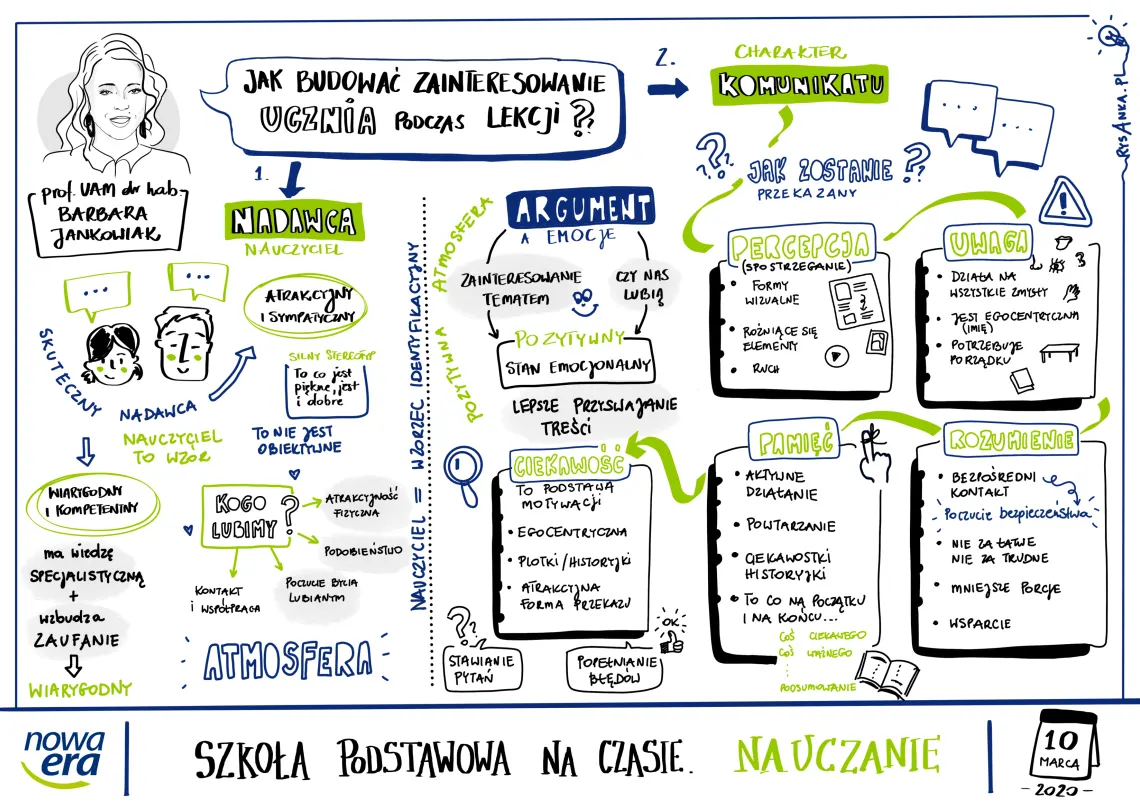 JAK BUDOWAĆ ZAINTERESOWANIE
UCZNIA PODCZAS LEKCJI ?
prof. UAM dr hab.
BARBARA
JANKOWIAK
1.
NADAWCA
NAUCZYCIEL
...
...
SKUTECZNY
NADAWCA
NAUCZYCIEL
TO WZÓR
ATRAKCYJNY
I SYMPATYCZNY
SILNY STEREOTYP
To co jest
piękne, jest
i dobre
TO NIE JEST
OBIEKTYWNE
WIARYGODNY
I KOMPETENTNY
ma wiedzę
SPECJALISTYCZNĄ
+
wzbudza
ZAUFANIE
WIARYGODNY
KOGO
LUBIMY ?
ATRAKCYJNOŚĆ
FIZYCZNA
PODOBIEŃSTWO
POCZUCIE BYCIA
LUBIANYM
KONTAKT
I WSPÓŁPRACA
ATMOSFERA
NAUCZYCIEL = WZORZEC IDENTYFIKACYJNY
POZYTYWNA ATMOSFERA
ARGUMENT
A EMOCJE
ZAINTERESOWANIE
TEMATEM
CZY NAS
LUBIĄ
POZYTYWNY
STAN EMOCJONALNY
LEPSZE PRZYSWAJANIE
TREŚCI
2.
CHARAKTER
KOMUNIKATU
?? JAK ZOSTANIE ?
PRZEKAZANY
...
...
RYSANKA.PL
PERCEPCJA
(SPOSTRZEGANIE)
• FORMY
WIZUALNE
• RÓŻNIĄCE SIĘ
ELEMENTY
• RUCH
UWAGA
• DZIAŁA NA
WSZYSTKIE ZMYSŁY
• JEST EGOCENTRYCZNA
(IMIĘ)
• POTRZEBUJE
PORZĄDKU
ROZUMIENIE
• BEZPOŚREDNI
KONTAKT
Poczucie bezpieczeństwa
• NIE ZA ŁATWE
NIE ZA TRUDNE
• MNIEJSZE PORCJE
• WSPARCIE
PAMIĘĆ
• AKTYWNE
DZIAŁANIE
• POWTARZANIE
• CIEKAWOSTKI
HISTORYJKI
• TO CO NA POCZĄTKU
I NA KOŃCU...
COŚ CIEKAWEGO
COŚ WAŻNEGO
PODSUMOWANIE
CIEKAWOŚĆ
• TO PODSTAWA
MOTYWACJI
• EGOCENTRYCZNA
• PLOTKI/HISTORYJKI
• ATRAKCYJNA
FORMA PRZEKAZU
?
STAWIANIE
PYTAŃ
OK
POPEŁNIANIE
BŁĘDÓW
nowa
era
SZKOŁA PODSTAWOWA NA CZASIE. NAUCZANIE
10
MARCA
- 2020 -